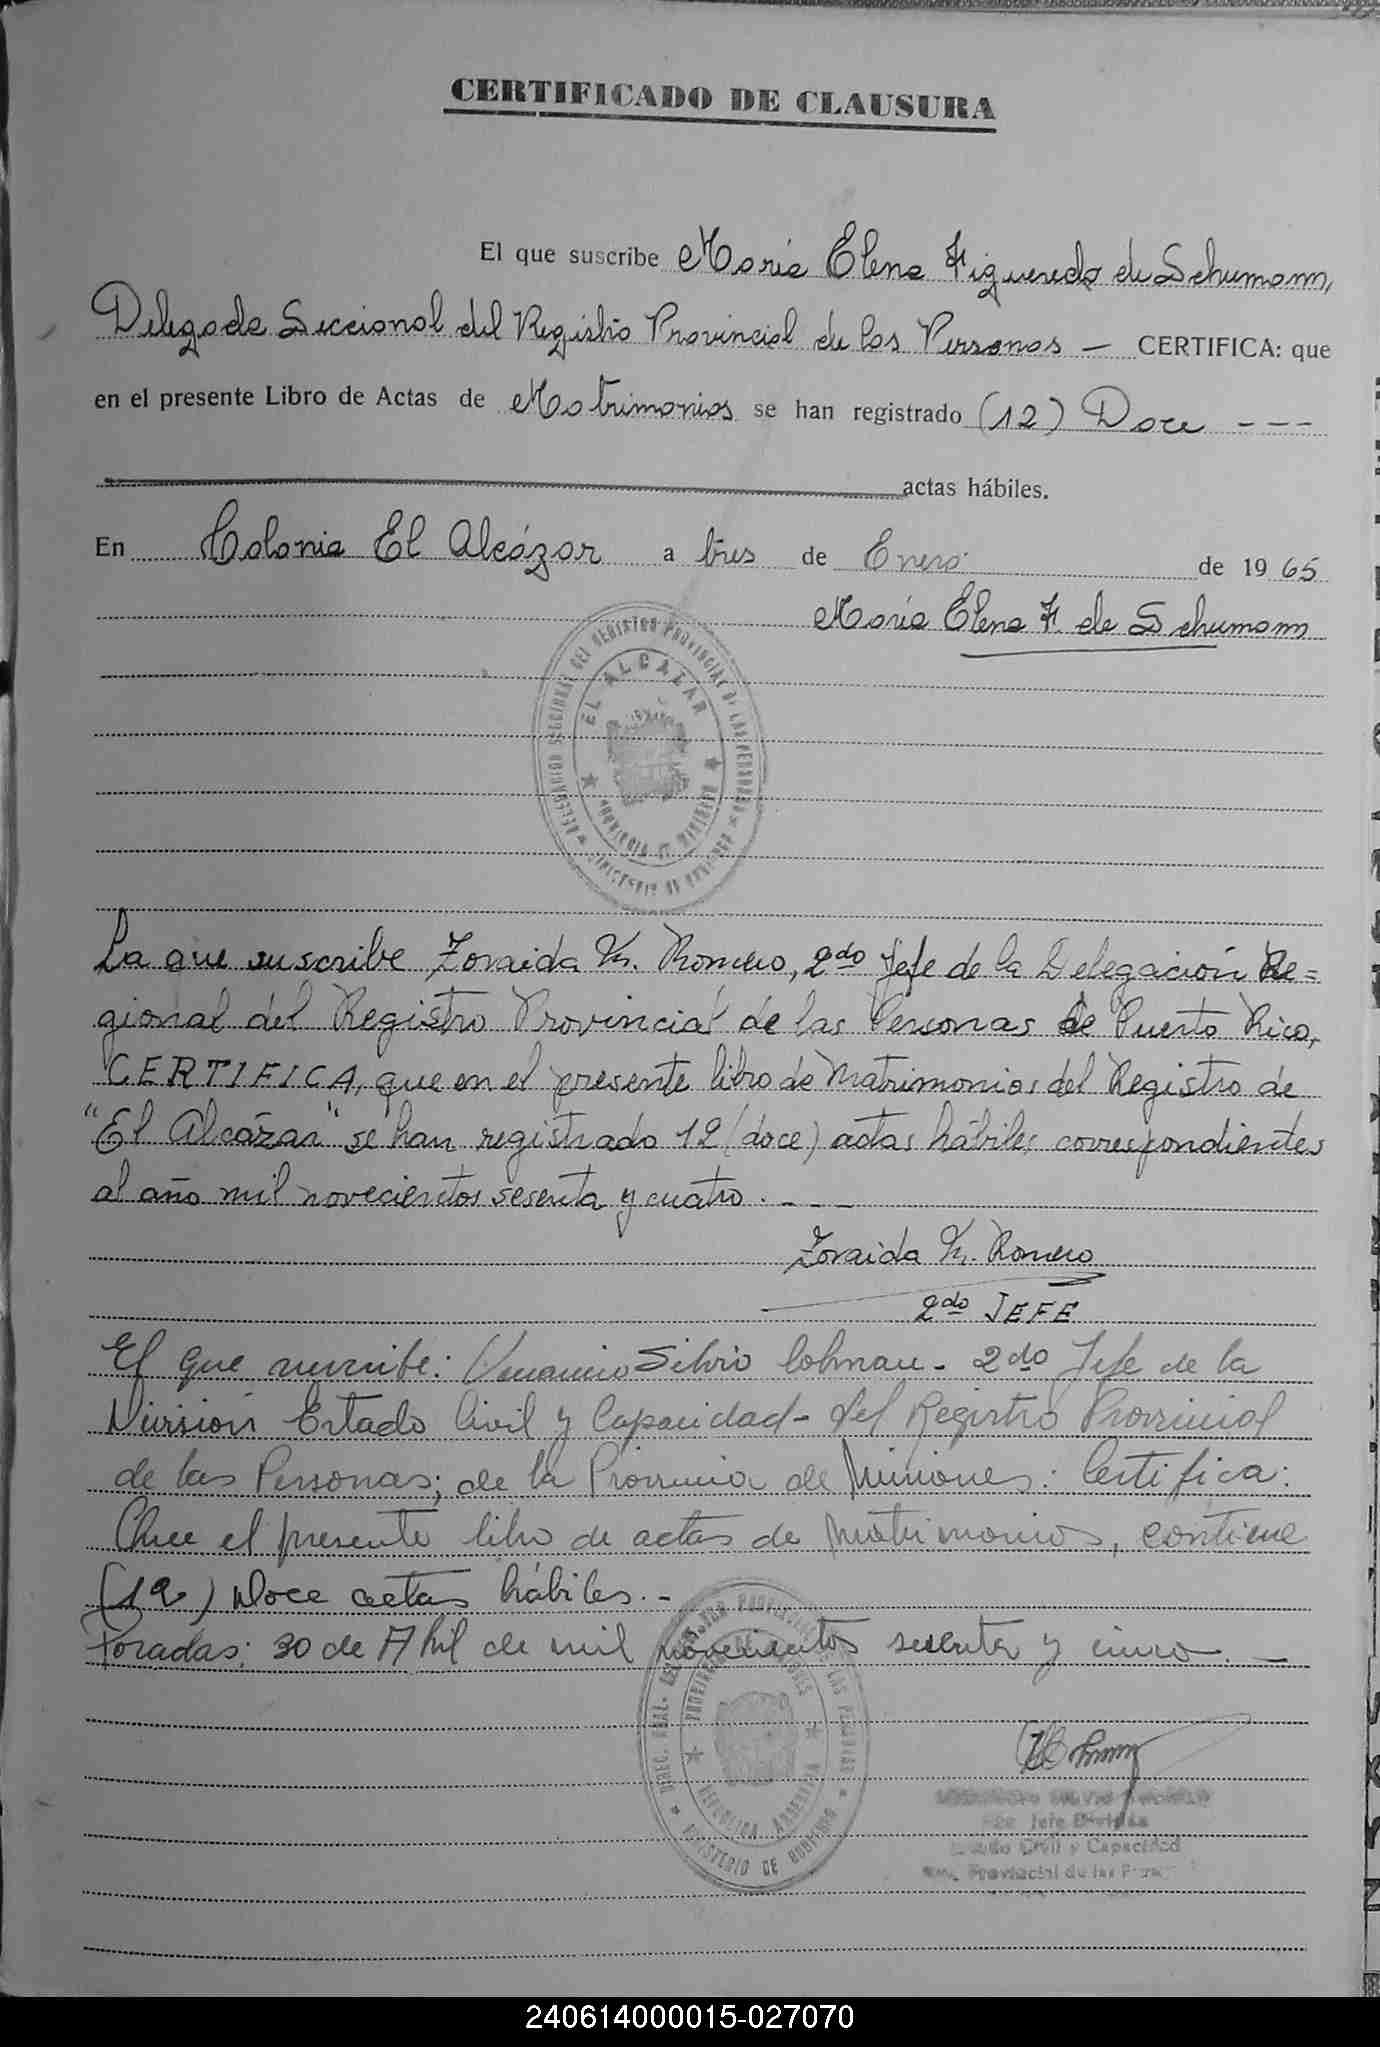 CERTIFICADO DE CLAUSURA
El que suscribe María Elena Figueredo de Schumann,
Delegada Seccional del Registro Provincial de las Personas — CERTIFICA: que
en el presente Libro de Actas de Matrimonios se han registrado (12) Doce ---
actas hábiles.
En Colonia El Alcázar a tres de Enero de 1965
María Elena F. de Schumann
EL ALCAZAR
La que suscribe Zoraida K. Romero, 2do Jefe de la Delegación Re=
gional del Registro Provincial de las Personas de Puerto Rico,
CERTIFICA, que en el presente libro de Matrimonios del Registro de
"El Alcázar" se han registrado 12 (doce) actas hábiles correspondientes
al año mil novecientos sesenta y cuatro. - - -
Zoraida K. Romero
2do JEFE
El que suscribe: Silvio Colman - 2do Jefe de la
División Estado Civil y Capacidad - del Registro Provincial
de las Personas; de la Provincia de Misiones: Certifica:
Que el presente libro de actas de Matrimonios, contiene
(12) Doce actas hábiles. -
Posadas: 30 de Abril de mil novecientos sesenta y cinco. —
REPUBLICA ARGENTINA
MINISTERIO DE GOBIERNO
2do Jefe División
Estado Civil y Capacidad
Provincial de las
240614000015-027070